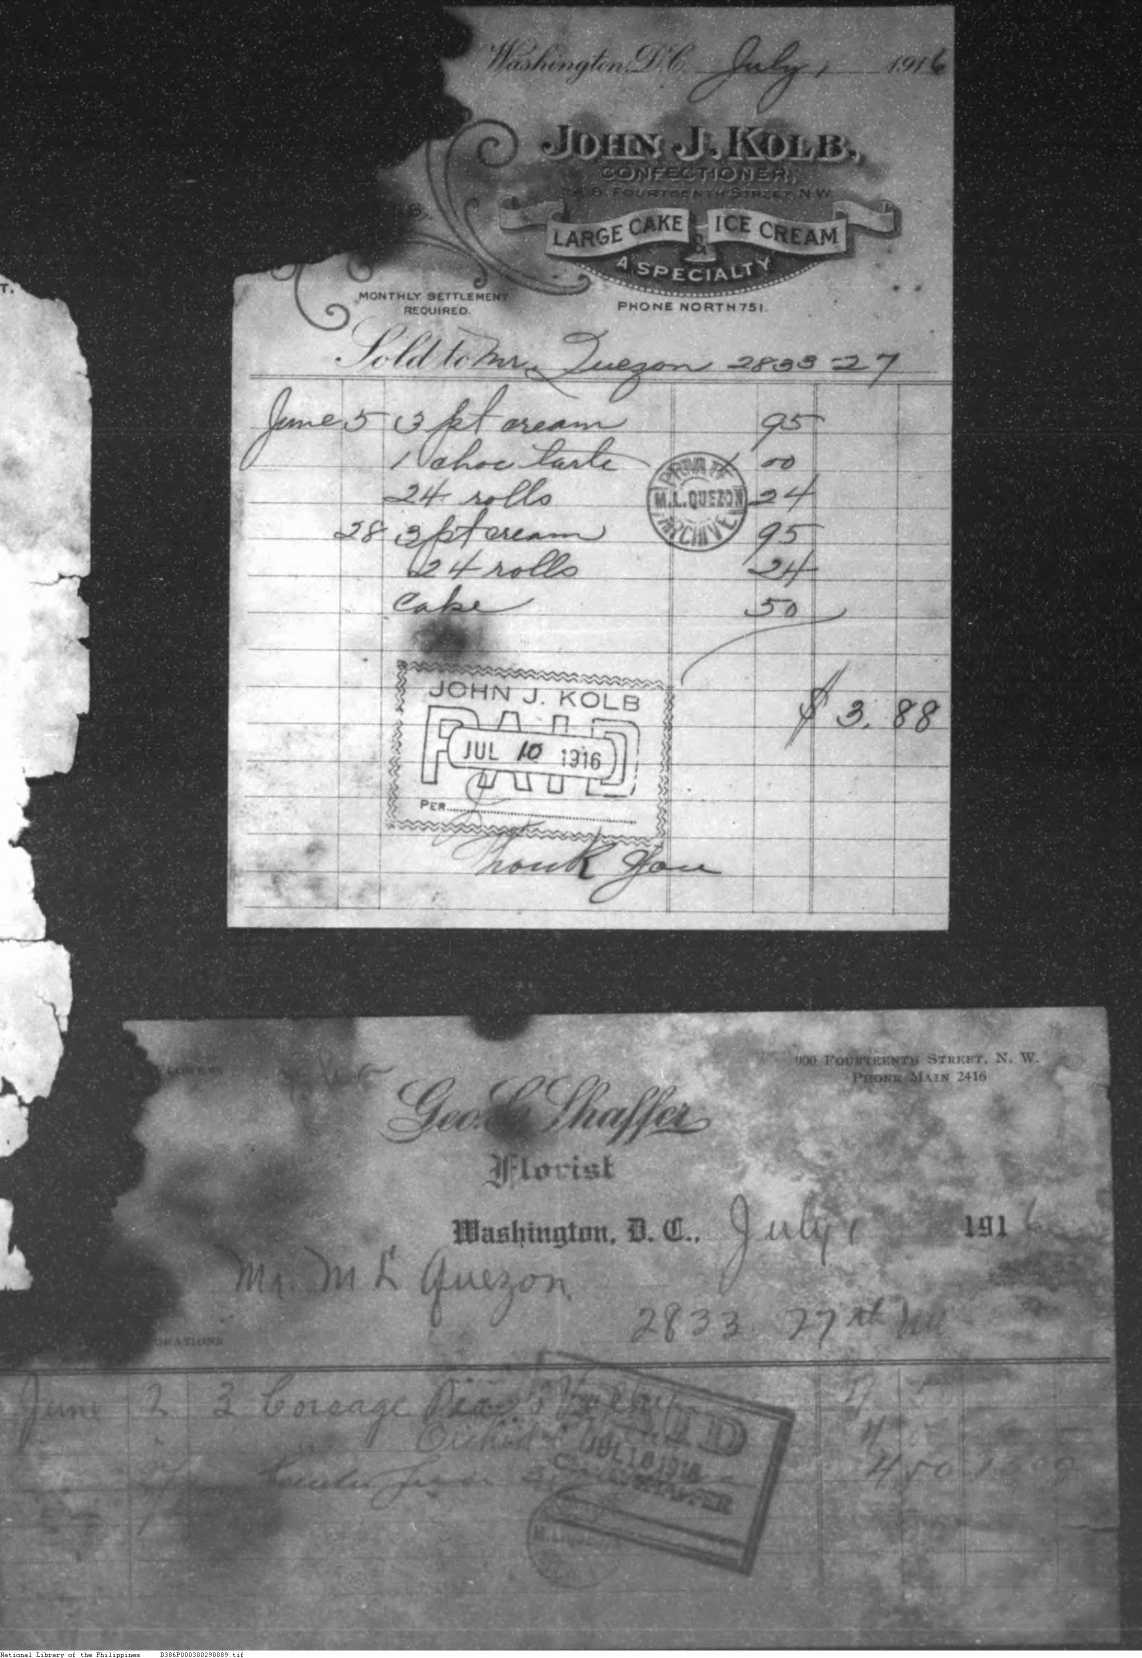 Washington, D.C. July 1 1916
JOHN J. KOLB,
CONFECTIONER,
FOURTEENTH STREET, N.W.
LARGE CAKE & ICE CREAM
A SPECIALTY
T.
MONTHLY SETTLEMENT
REQUIRED.
PHONE NORTH 751.
Sold to Mr. Quezon 2833-27
June 5 3 pt cream 95
1 choc tarte 1 00
24 rolls 24
PRIVATE
M.L. QUEZON
ARCHIVE
28 3 pt cream 95
24 rolls 24
Cake 50
$3.88
JOHN J. KOLB
PAID
JUL 10 1916
PER
Thank You
900 FOURTEENTH STREET, N. W.
PHONE MAIN 2416
FLOWERS
Geo. C. Shaffer
Florist
Washington, D. C., July 1 1916
Mr. M L Quezon
2833 27th NW
ORATIONS
June 2 3 Corsage
PAID
JUL 18 1916
SHAFFER
4 50
M.L. QUEZON
National Library of the Philippines D386P000300290089.tif